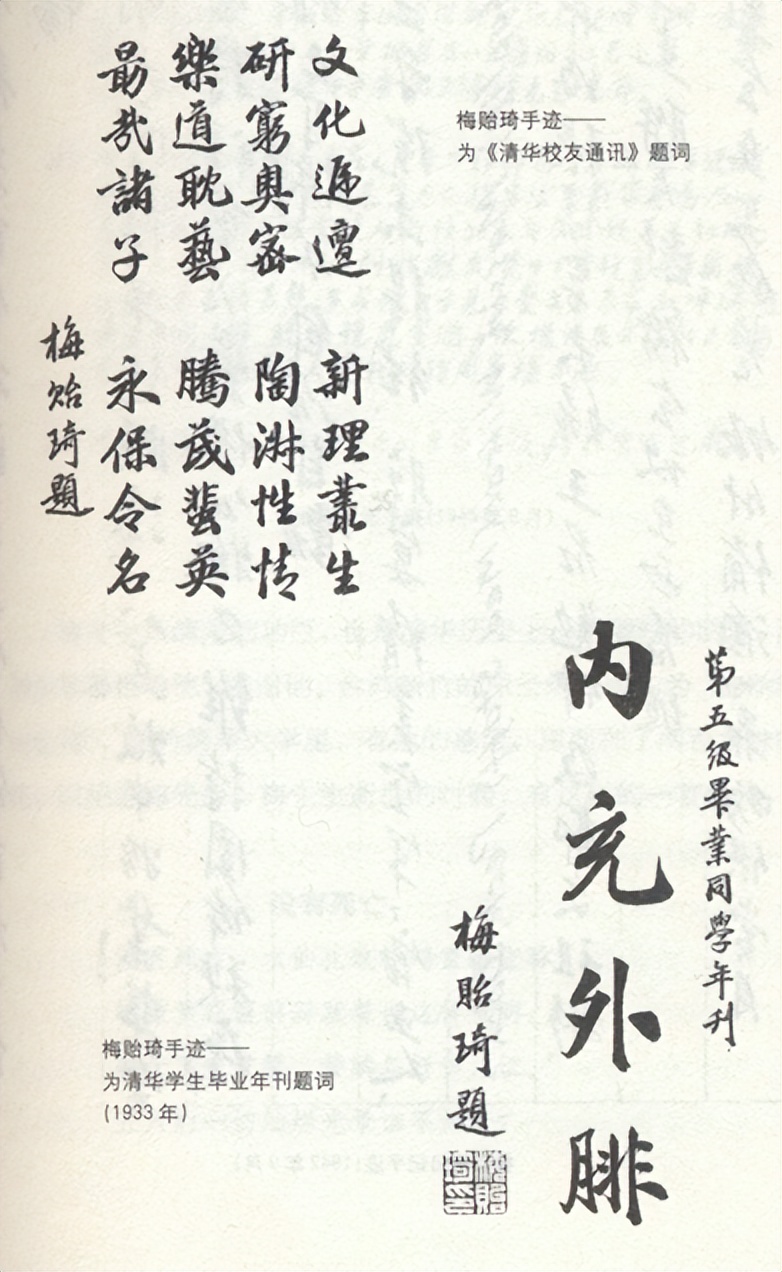 文化遞邅 新理叢生
研窮奥密 陶淑性情
樂道耽藝 騰茂蜚英
勗哉諸子 永保令名
梅貽琦題
梅贻琦手迹——
为《清华校友通讯》题词
第五级畢業同學年刊
内充外腓
梅貽琦題
梅贻琦手迹——
为清华学生毕业年刊题词
(1933年)